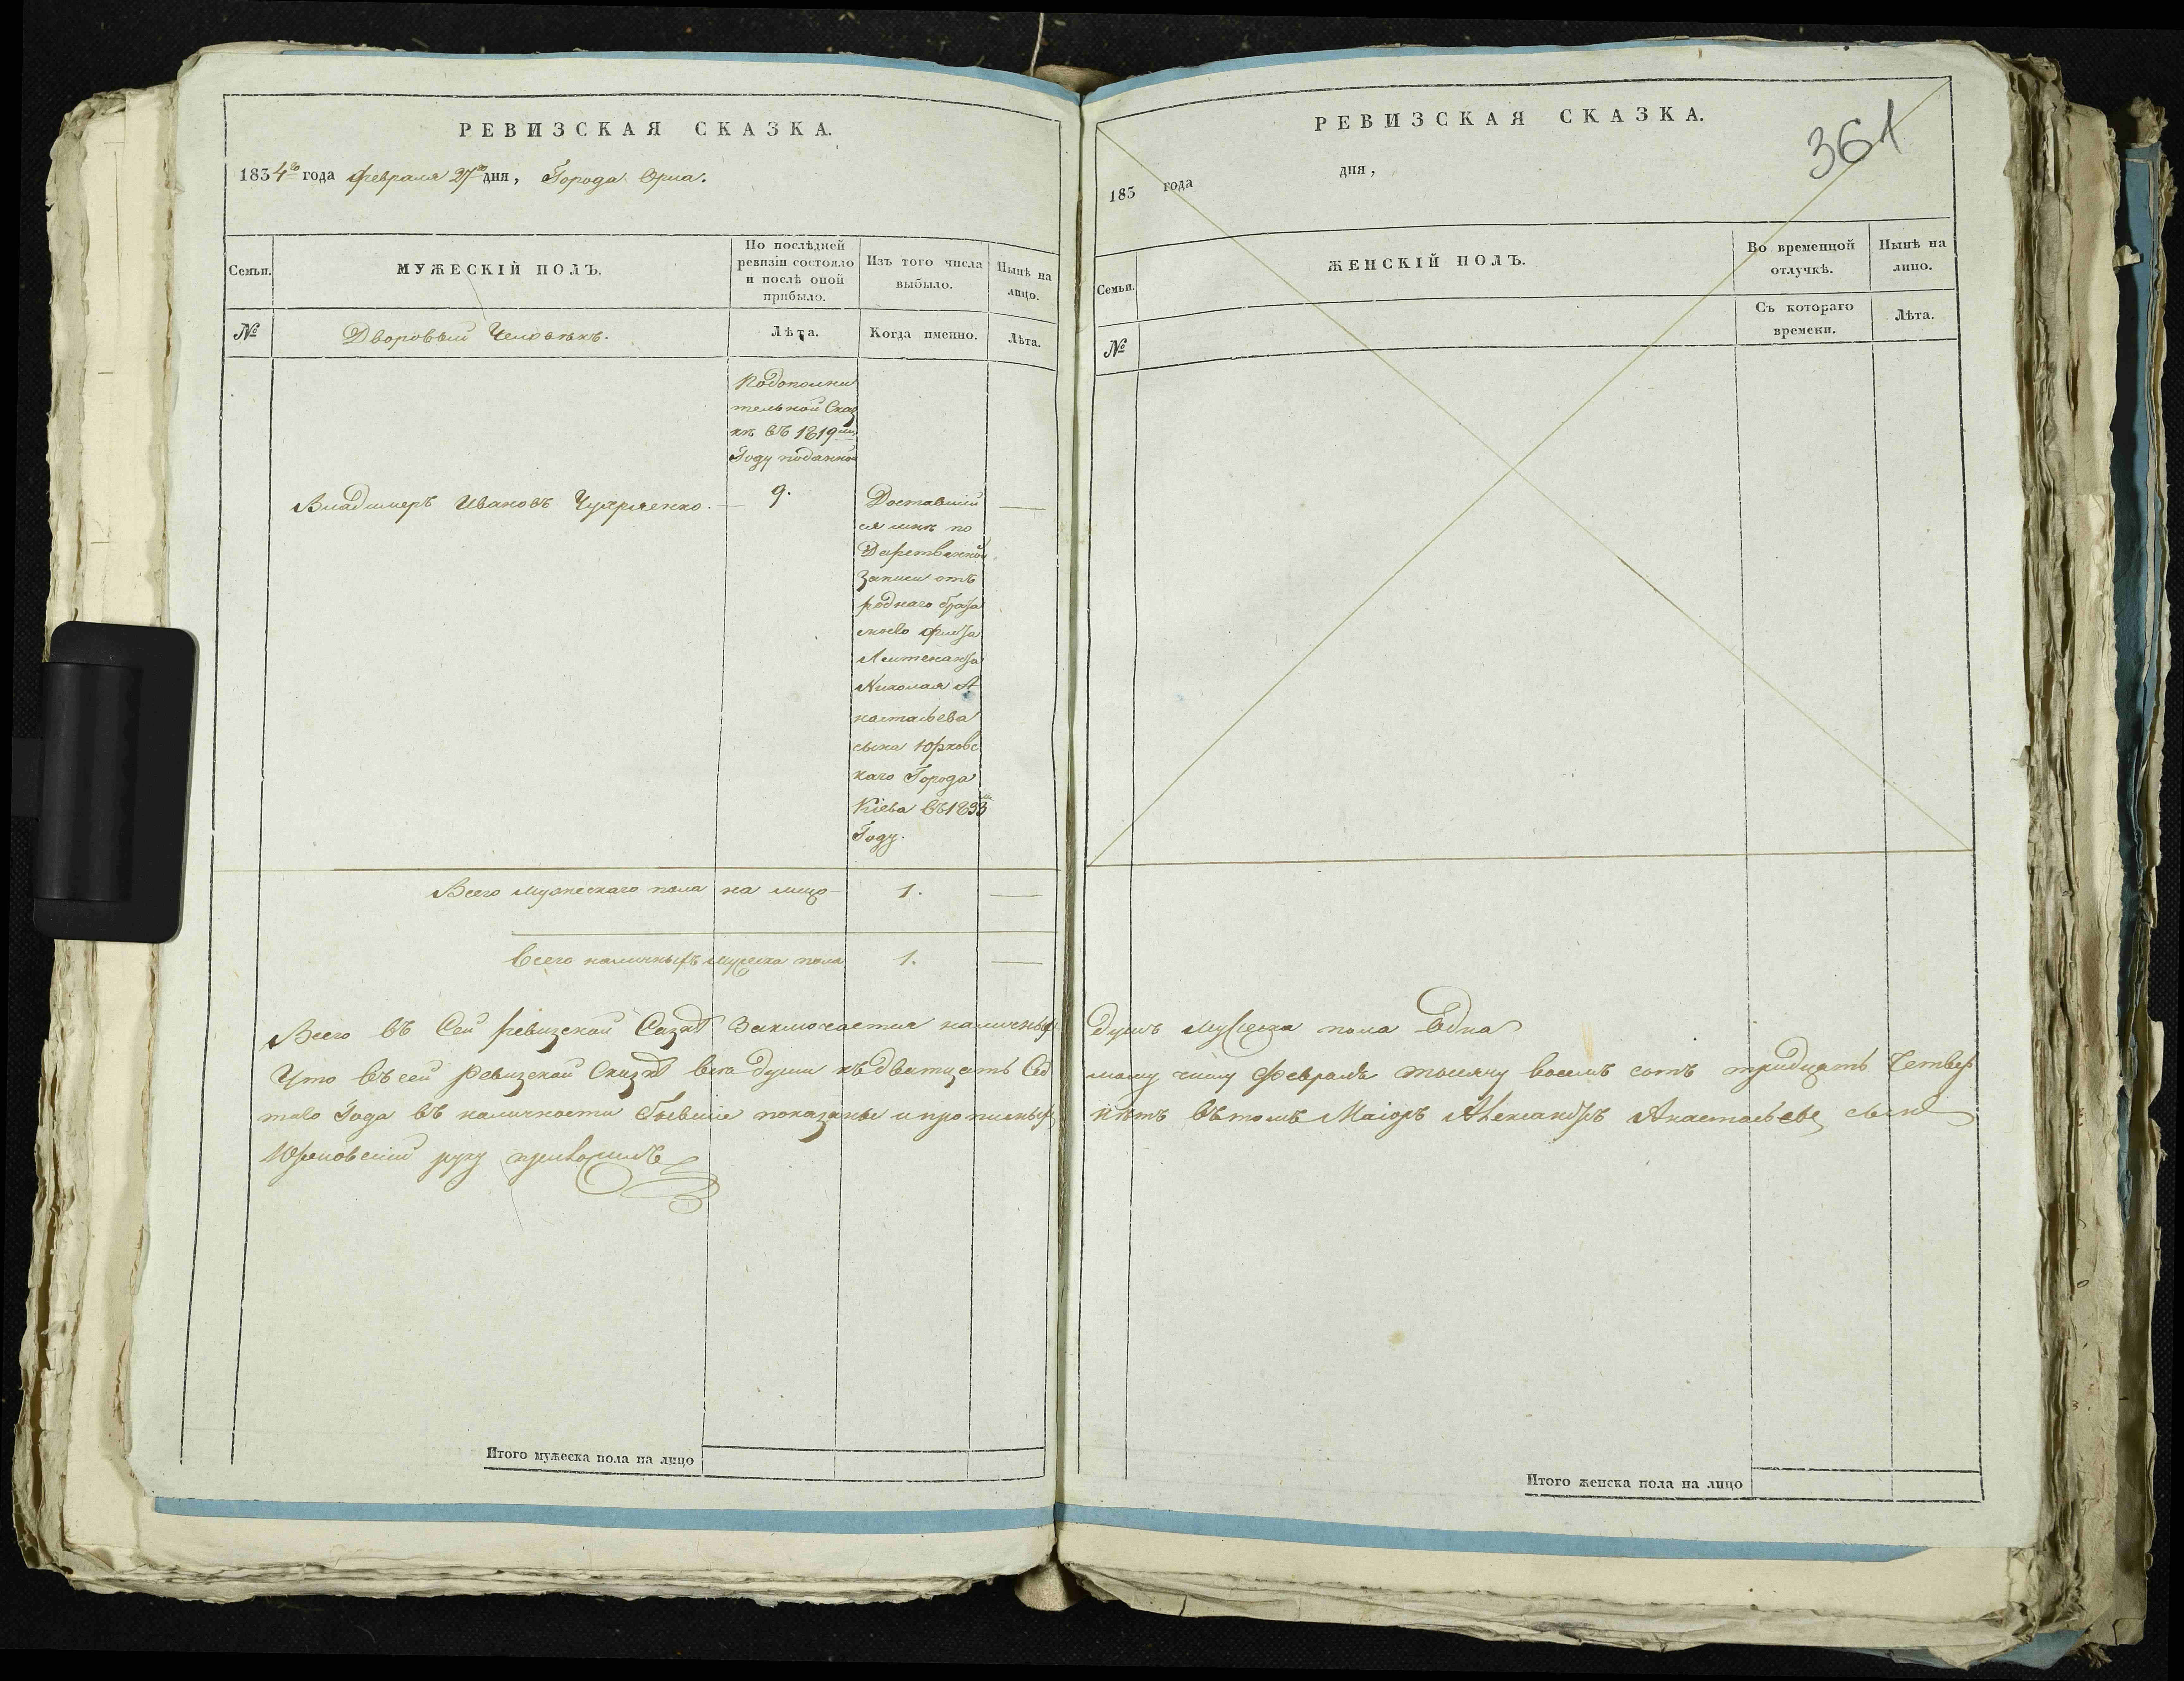 РЕВИЗСКАЯ СКАЗКА.
1834го года февраля 27го дня, Города Орла.
Семьи.
МУЖЕСКІЙ ПОЛЪ.
По послѣдней
ревизіи состояло
и послѣ оной
прибыло.
Изъ того числа
выбыло.
Нынѣ на
лицо.
№
Дворовый Человѣкъ.
Лѣта.
Когда именно.
Лѣта.
Подополни
тельной Сказ
кѣ въ 1819мъ
Году поданной
Владимеръ Ивановъ
9.
Доставшій
ся мнѣ по
Дарственной
Записи отъ
роднаго брата
моево
Лейтенанта
Николая А
настасьева
сына Юрковс
каго Города
Кіева въ 1833мъ
Году.
Всего мужескаго пола на лицо
1.
Всего наличныхъ мужеска пола
1.
Всего въ Сей ревизской Сказкѣ Заключается наличныхъ
Что въ сей Ревизской Сказкѣ все души къ дватцать Сед
таво Года въ наличности бывшіе показаны и прописныхъ
Юрковский руку приложилъ
РЕВИЗСКАЯ СКАЗКА.
361
183 года дня,
Семьи.
ЖЕНСКІЙ ПОЛЪ.
Во временной
отлучкѣ.
Нынѣ на
лицо.
№
Съ котораго
времени.
Лѣта.
душъ мужеска пола Одна
мому числу Февраля тысячу восемь сотъ тридцать Четвер
нѣтъ въ томъ Маіоръ Александръ Анастасьевъ сынъ
Итого мужеска пола на лицо
Итого женска пола на лицо